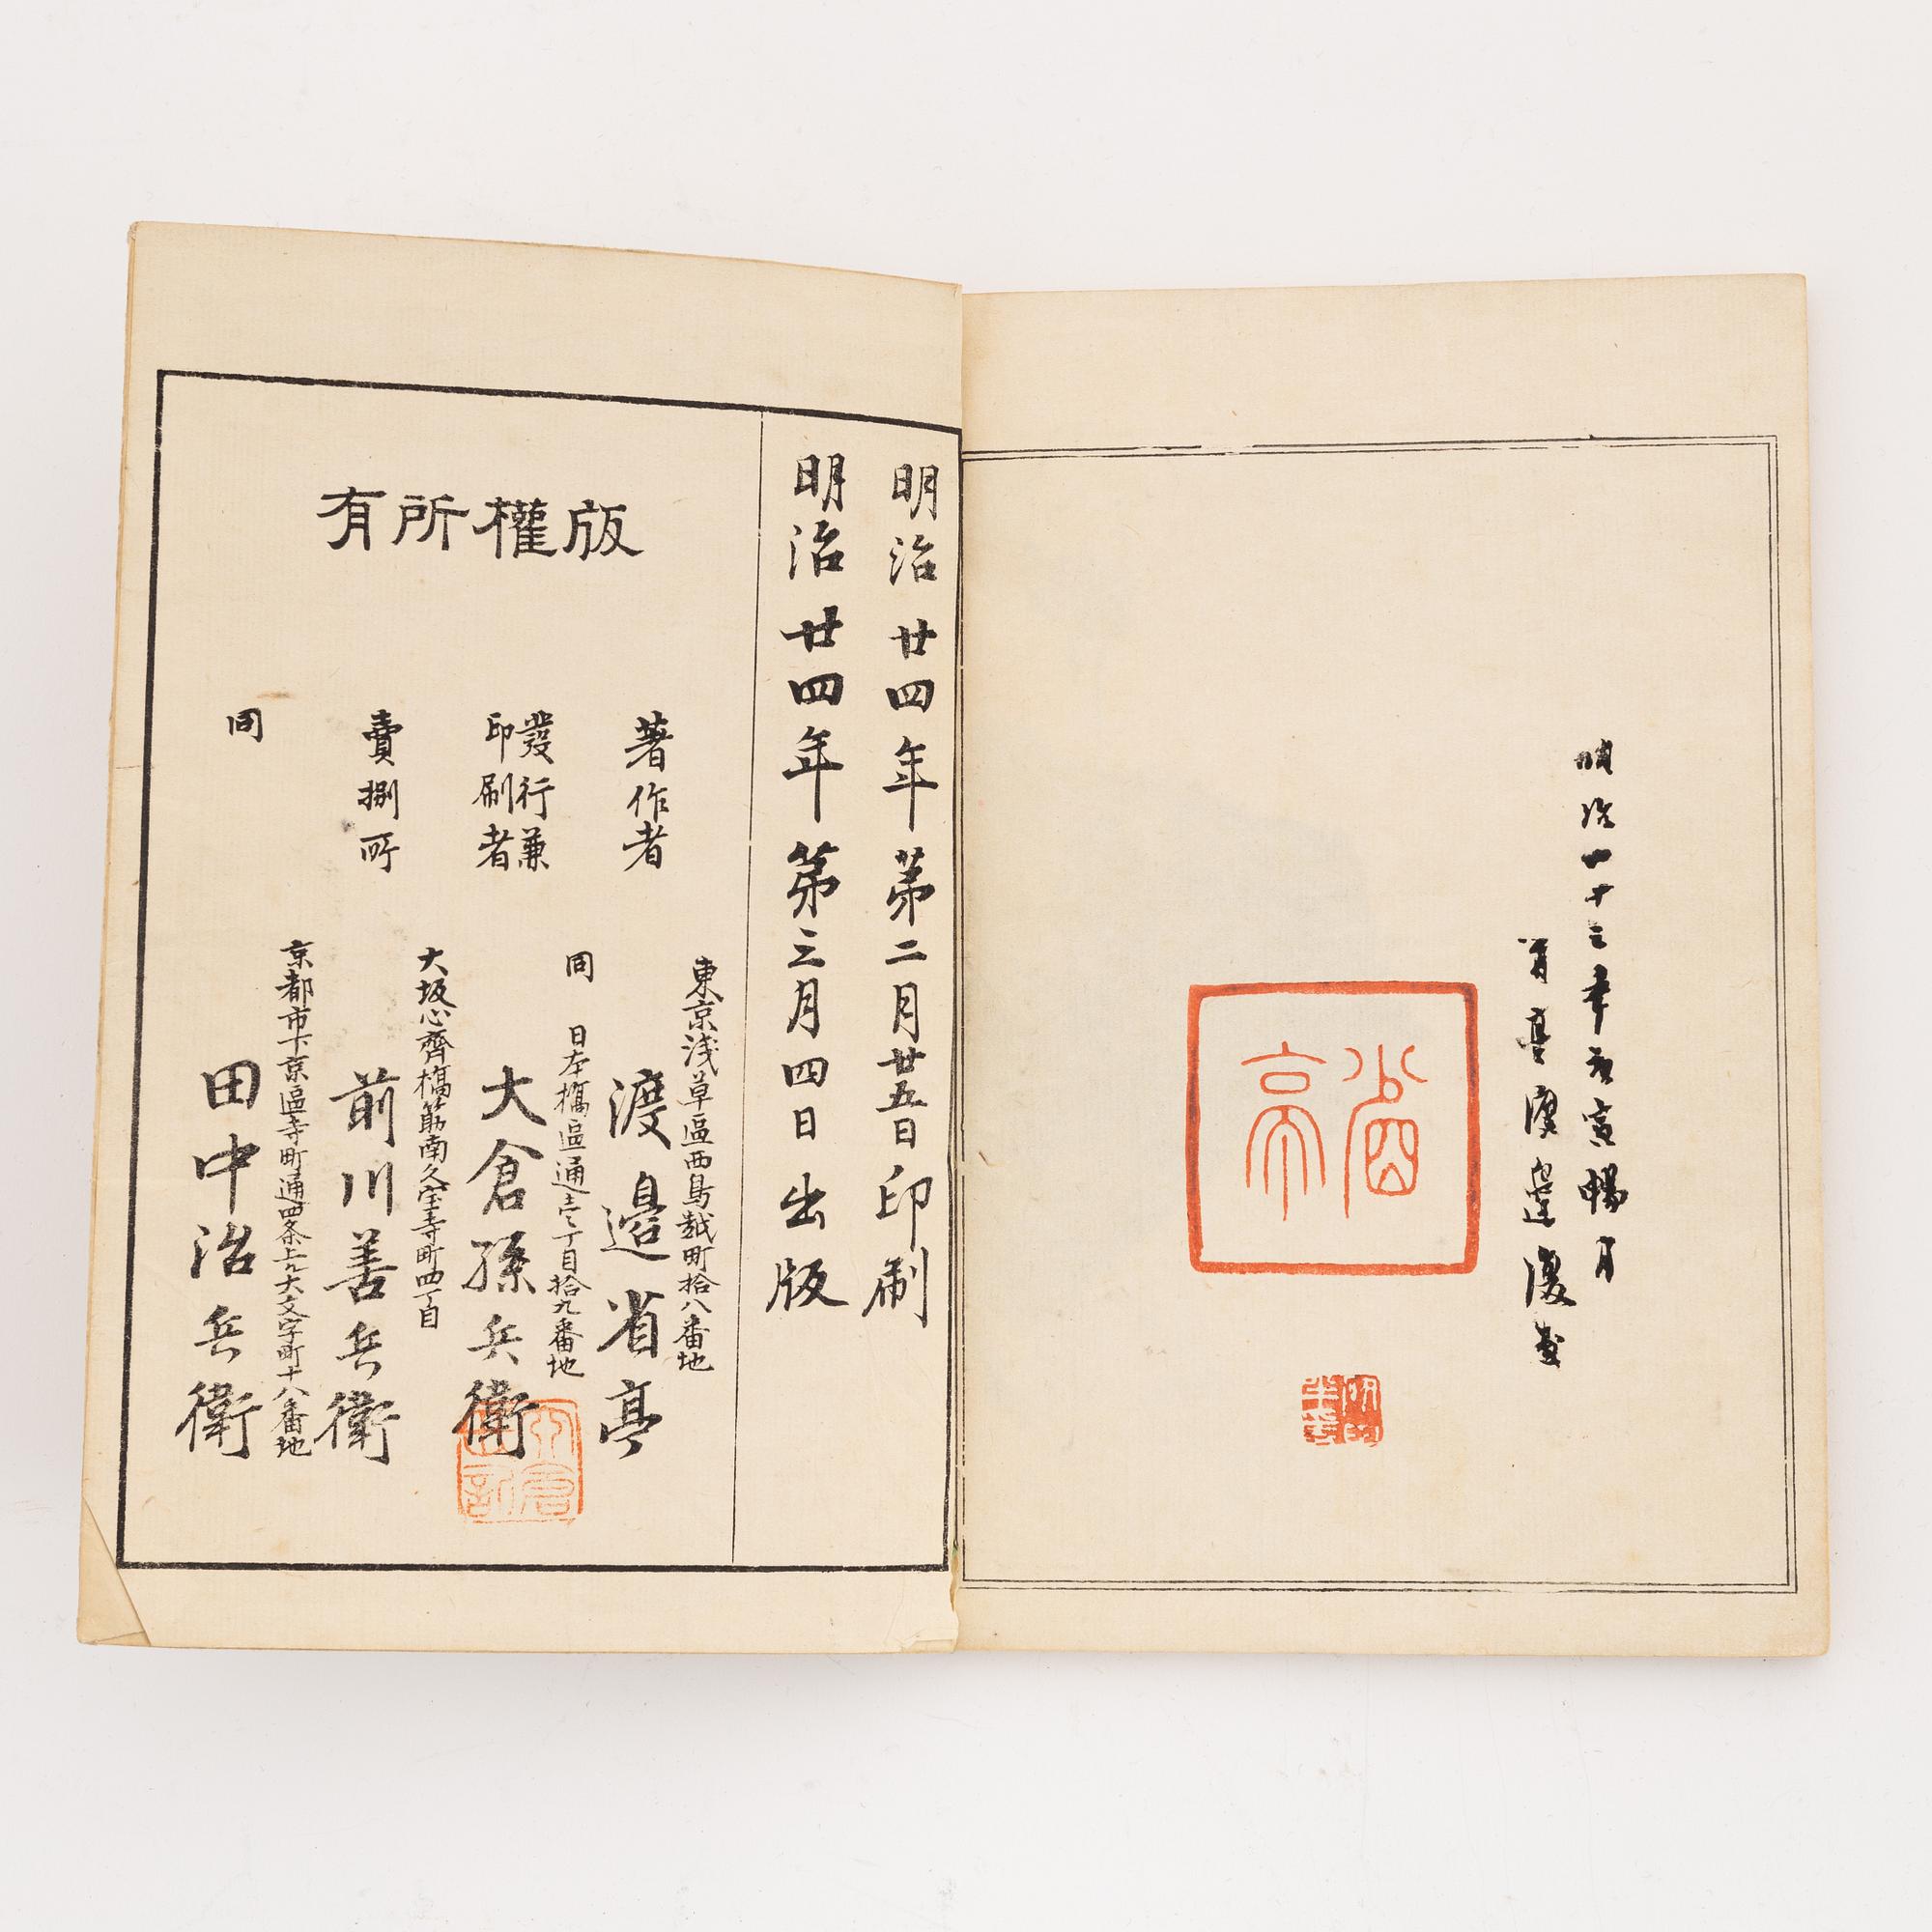 明治二十三年庚寅暢月
省亭渡邊復
省亭
明治廿四年第二月廿五日印刷
明治廿四年第三月四日出版
版權所有
著作者
東京浅草區西鳥越町拾八番地
渡邊省亭
發行兼
印刷者
同 日本橋區通壱丁目拾九番地
大倉孫兵衛
賣捌所
大坂心齊橋筋南久宝寺町四丁目
前川善兵衛
同
京都市下京區寺町通四条上ル大文字町十八番地
田中治兵衛